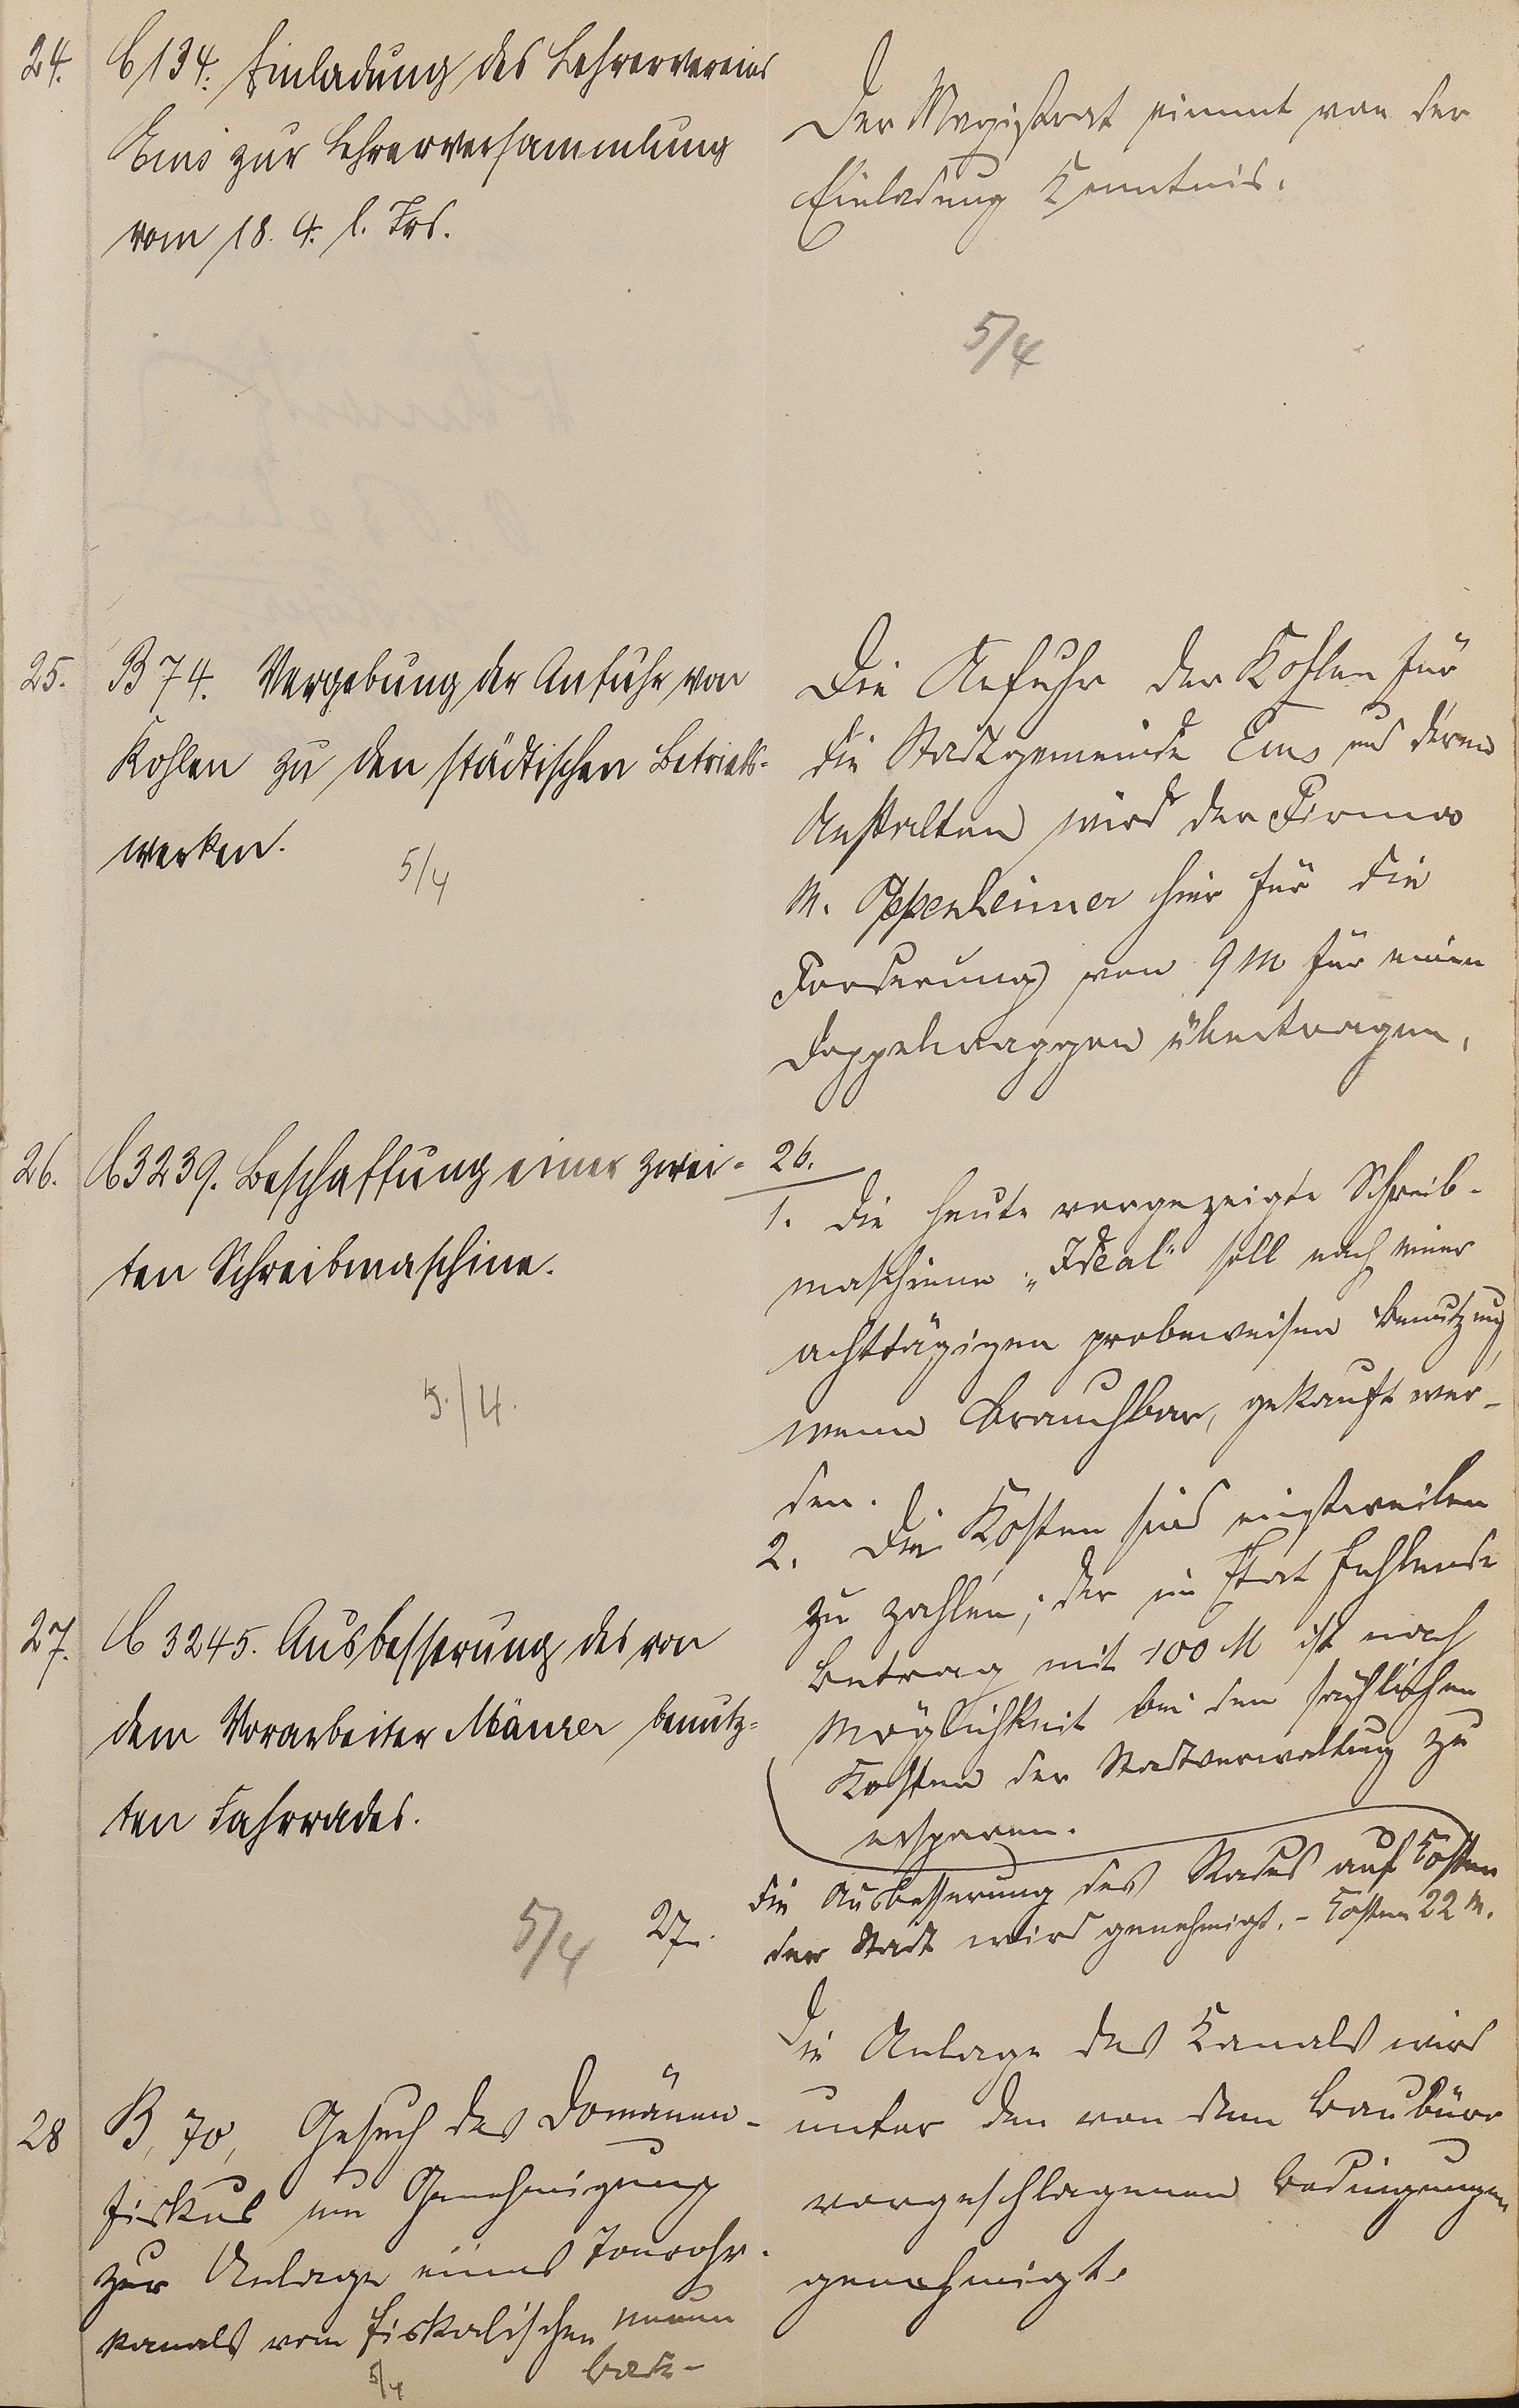 24.
C 134. Einladung des Lehrervereins
Ems zur Lehrerversammlung
vom 18. 4. l. Jrs.
Der Magistrat nimmt von der
Einladung Kenntnis.
5/4
25.
B 74. Vergebung der Anfuhr von
Kohlen zu den städtischen Betriebs-
werken.
5/4
Die Anfuhr der Kohlen für
die Stadtgemeinde Ems und deren
Anstalten wird der Firma
M. Oppenheimer hier für die
Forderung von 9 M für einen
Doppelwaggon übertragen.
26.
C 3239. Beschaffung einer zwei-
ten Schreibmaschine.
5./4.
26.
1. Die heute vorgezeigte Schreib-
maschine „Ideal“ soll nach einer
achttägigen probeweisen Benutzung,
wenn brauchbar, gekauft wer-
den.
2. Die Kosten sind einstweilen
zu zahlen; der im Etat fehlende
Betrag mit 100 M ist nach
Möglichkeit bei den sächlichen
Kosten der Stadtverwaltung zu
ersparen.
27.
C 3245. Ausbesserung des von
dem Vorarbeiter Mäurer benutz-
ten Fahrrades.
5/4
27.
Die Ausbesserung des Rades auf Kosten
der Stadt wird genehmigt. - Kosten 22 M.
28
B, 70, Gesuch des Domänen-
fiskus um Genehmigung
zur Anlage eines Tonrohr-
kanals vom fiskalischen neuen
Bade-
5/4
Die Anlage des Kanals wird
unter den von dem Baubüro
vorgeschlagenen Bedingungen
genehmigt.